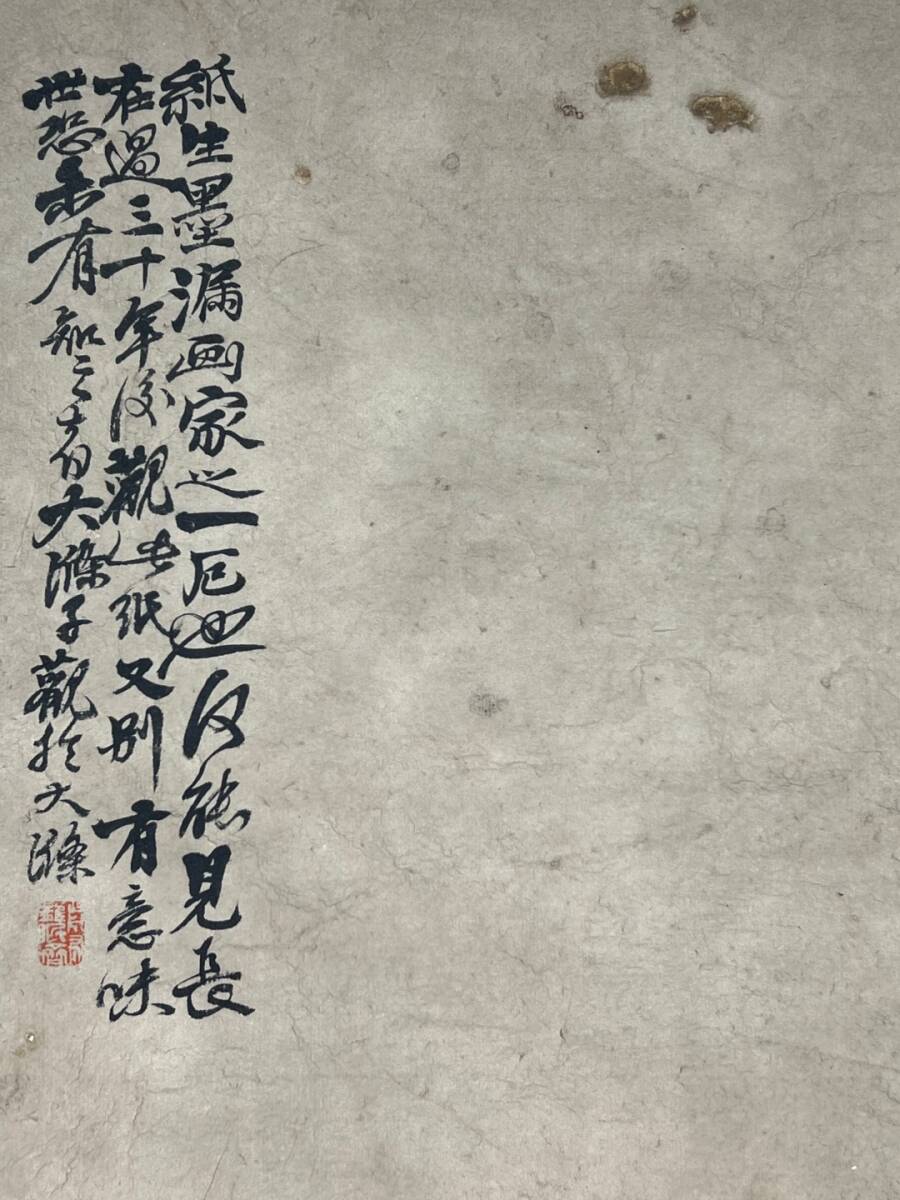 紙生墨漏画家之一厄也何能見長
在過三十年後觀此紙又別有意味
世恐未有知之者曰大滌子觀於大滌